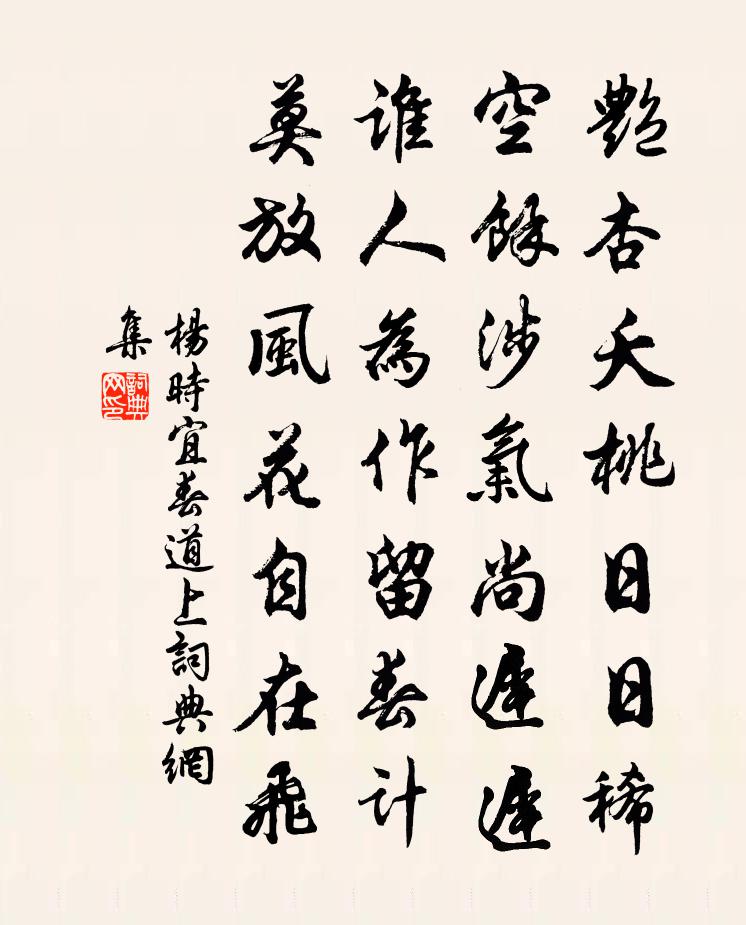 艷杏夭桃日日稀
空餘涉氣尚遲遲
誰人為作留春計
莫放風花自在飛
楊時宜春道上詞典網
集
詞典網印